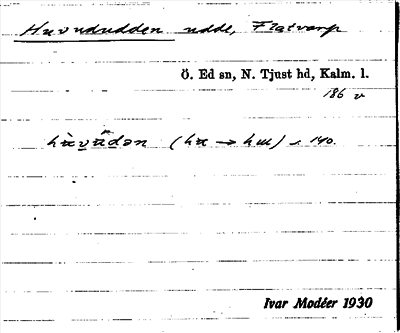 Huvududden udde, Flatvarp
Ö. Ed sn, N. Tjust hd, Kalm. l.
186 v
140.
Ivar Modéer 1930